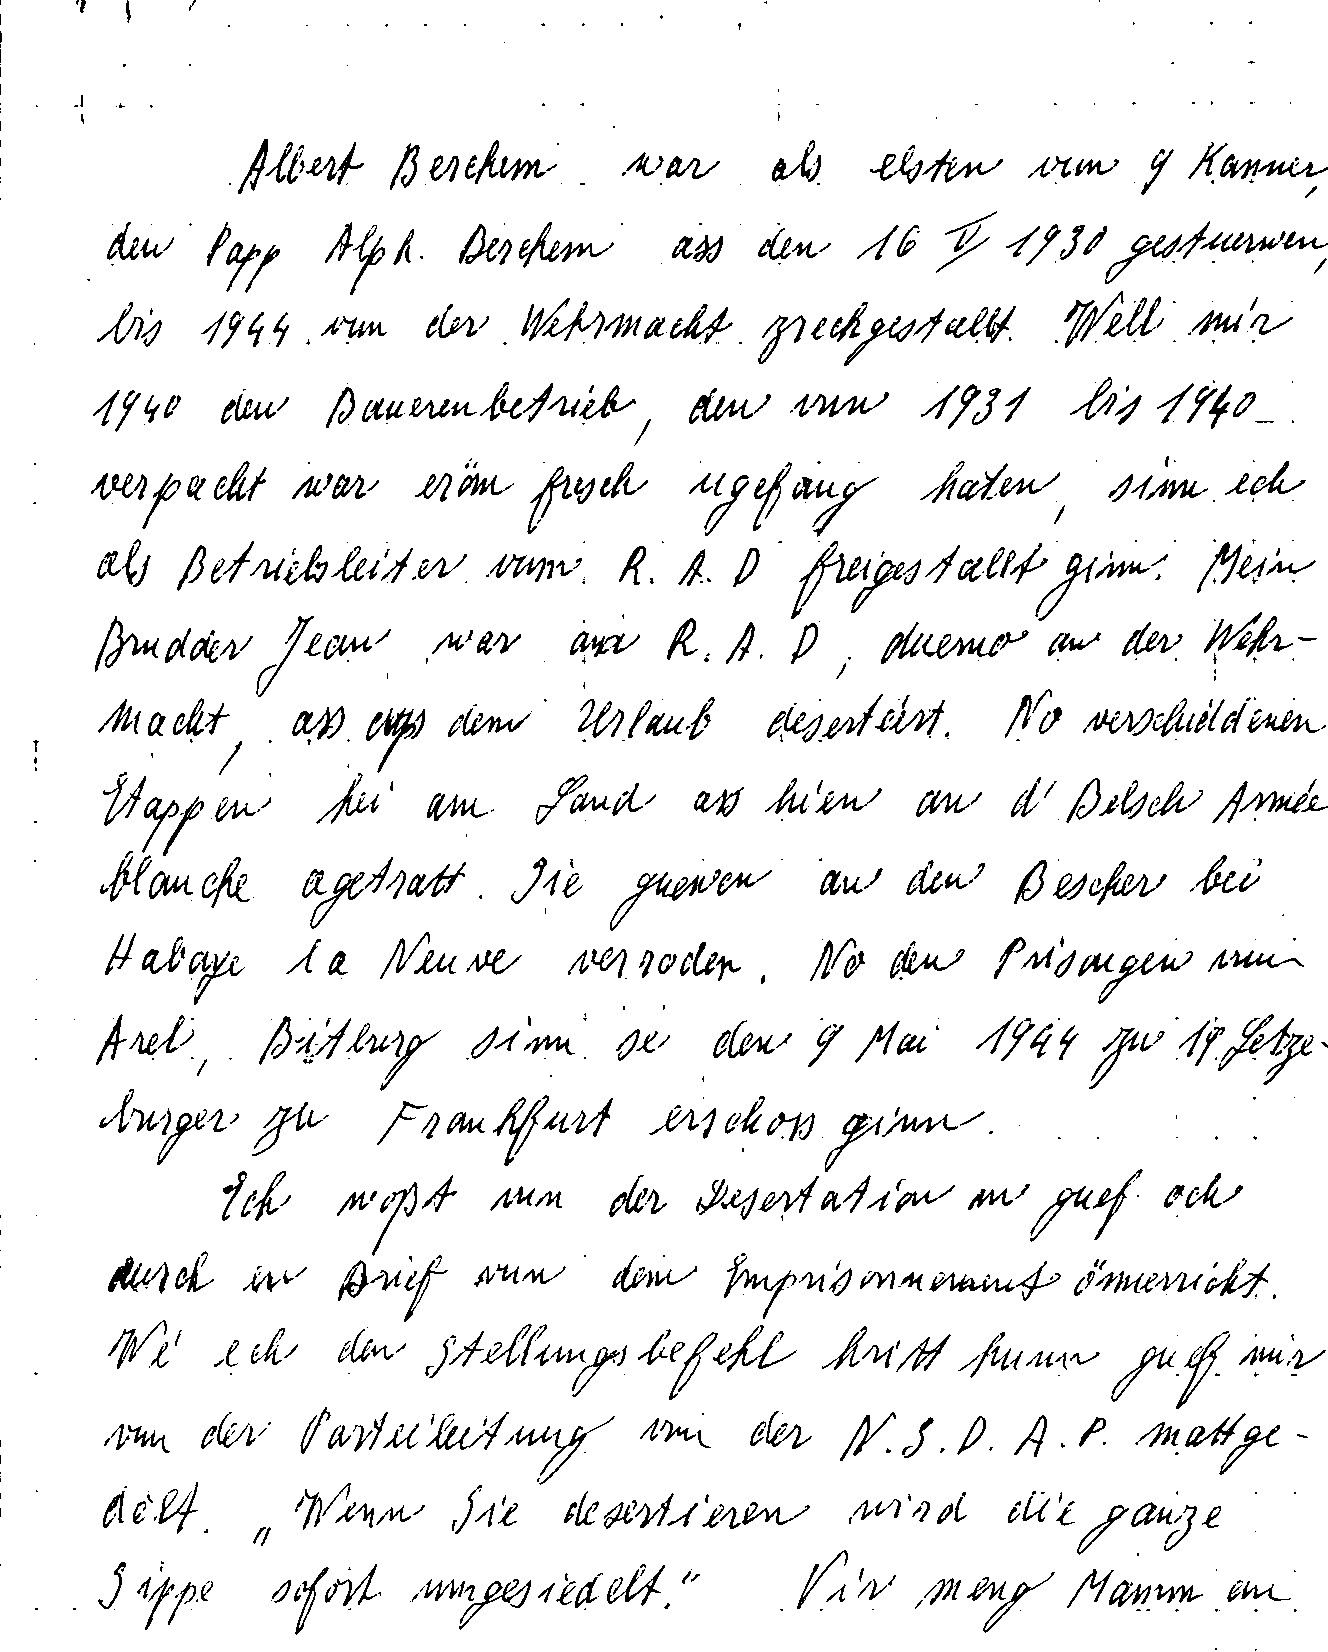 Albert Berchem war als elsten vun 9 Kanner,
den Papp Alph. Berchem ass den 16 V 1930 gestuerwen,
bis 1944 vun der Wehrmacht zreckgestallt. Well mir
1940 den Bauerenbetrieb, den vun 1931 bis 1940
verpacht war eröm fresch ugefäng haten, sinn ech
als Betriebsleiter vum R. A. D freigestallt ginn. Mein
Brudder Jean war am R. A. D, duerno an der Wehr-
macht, ass aus dem Urlaub desertéiert. No verschiddenen
Etappen hei am Land ass hien an d' Belsch Armée
blanche agetratt. Sie guewen an den Bescher bei
Habaye la Neuve verroden. No den Prisongen vun
Arel, Bitburg sinn se den 9 Mai 1944 zu 19 Letze-
burger zu Frankfurt erschoss ginn.
Ech woßt vun der Desertation an guef och
durch en Brief vun dem Emprisonnement önnerricht.
Wé ech den Stellungsbefehl kritt hunn guef mir
vun der Parteileitung vun der N.S.D.A.P. mattge-
délt. „Wenn Sie desertieren wird die ganze
Sippe sofort umgesiedelt.“ Vir meng Mamm an